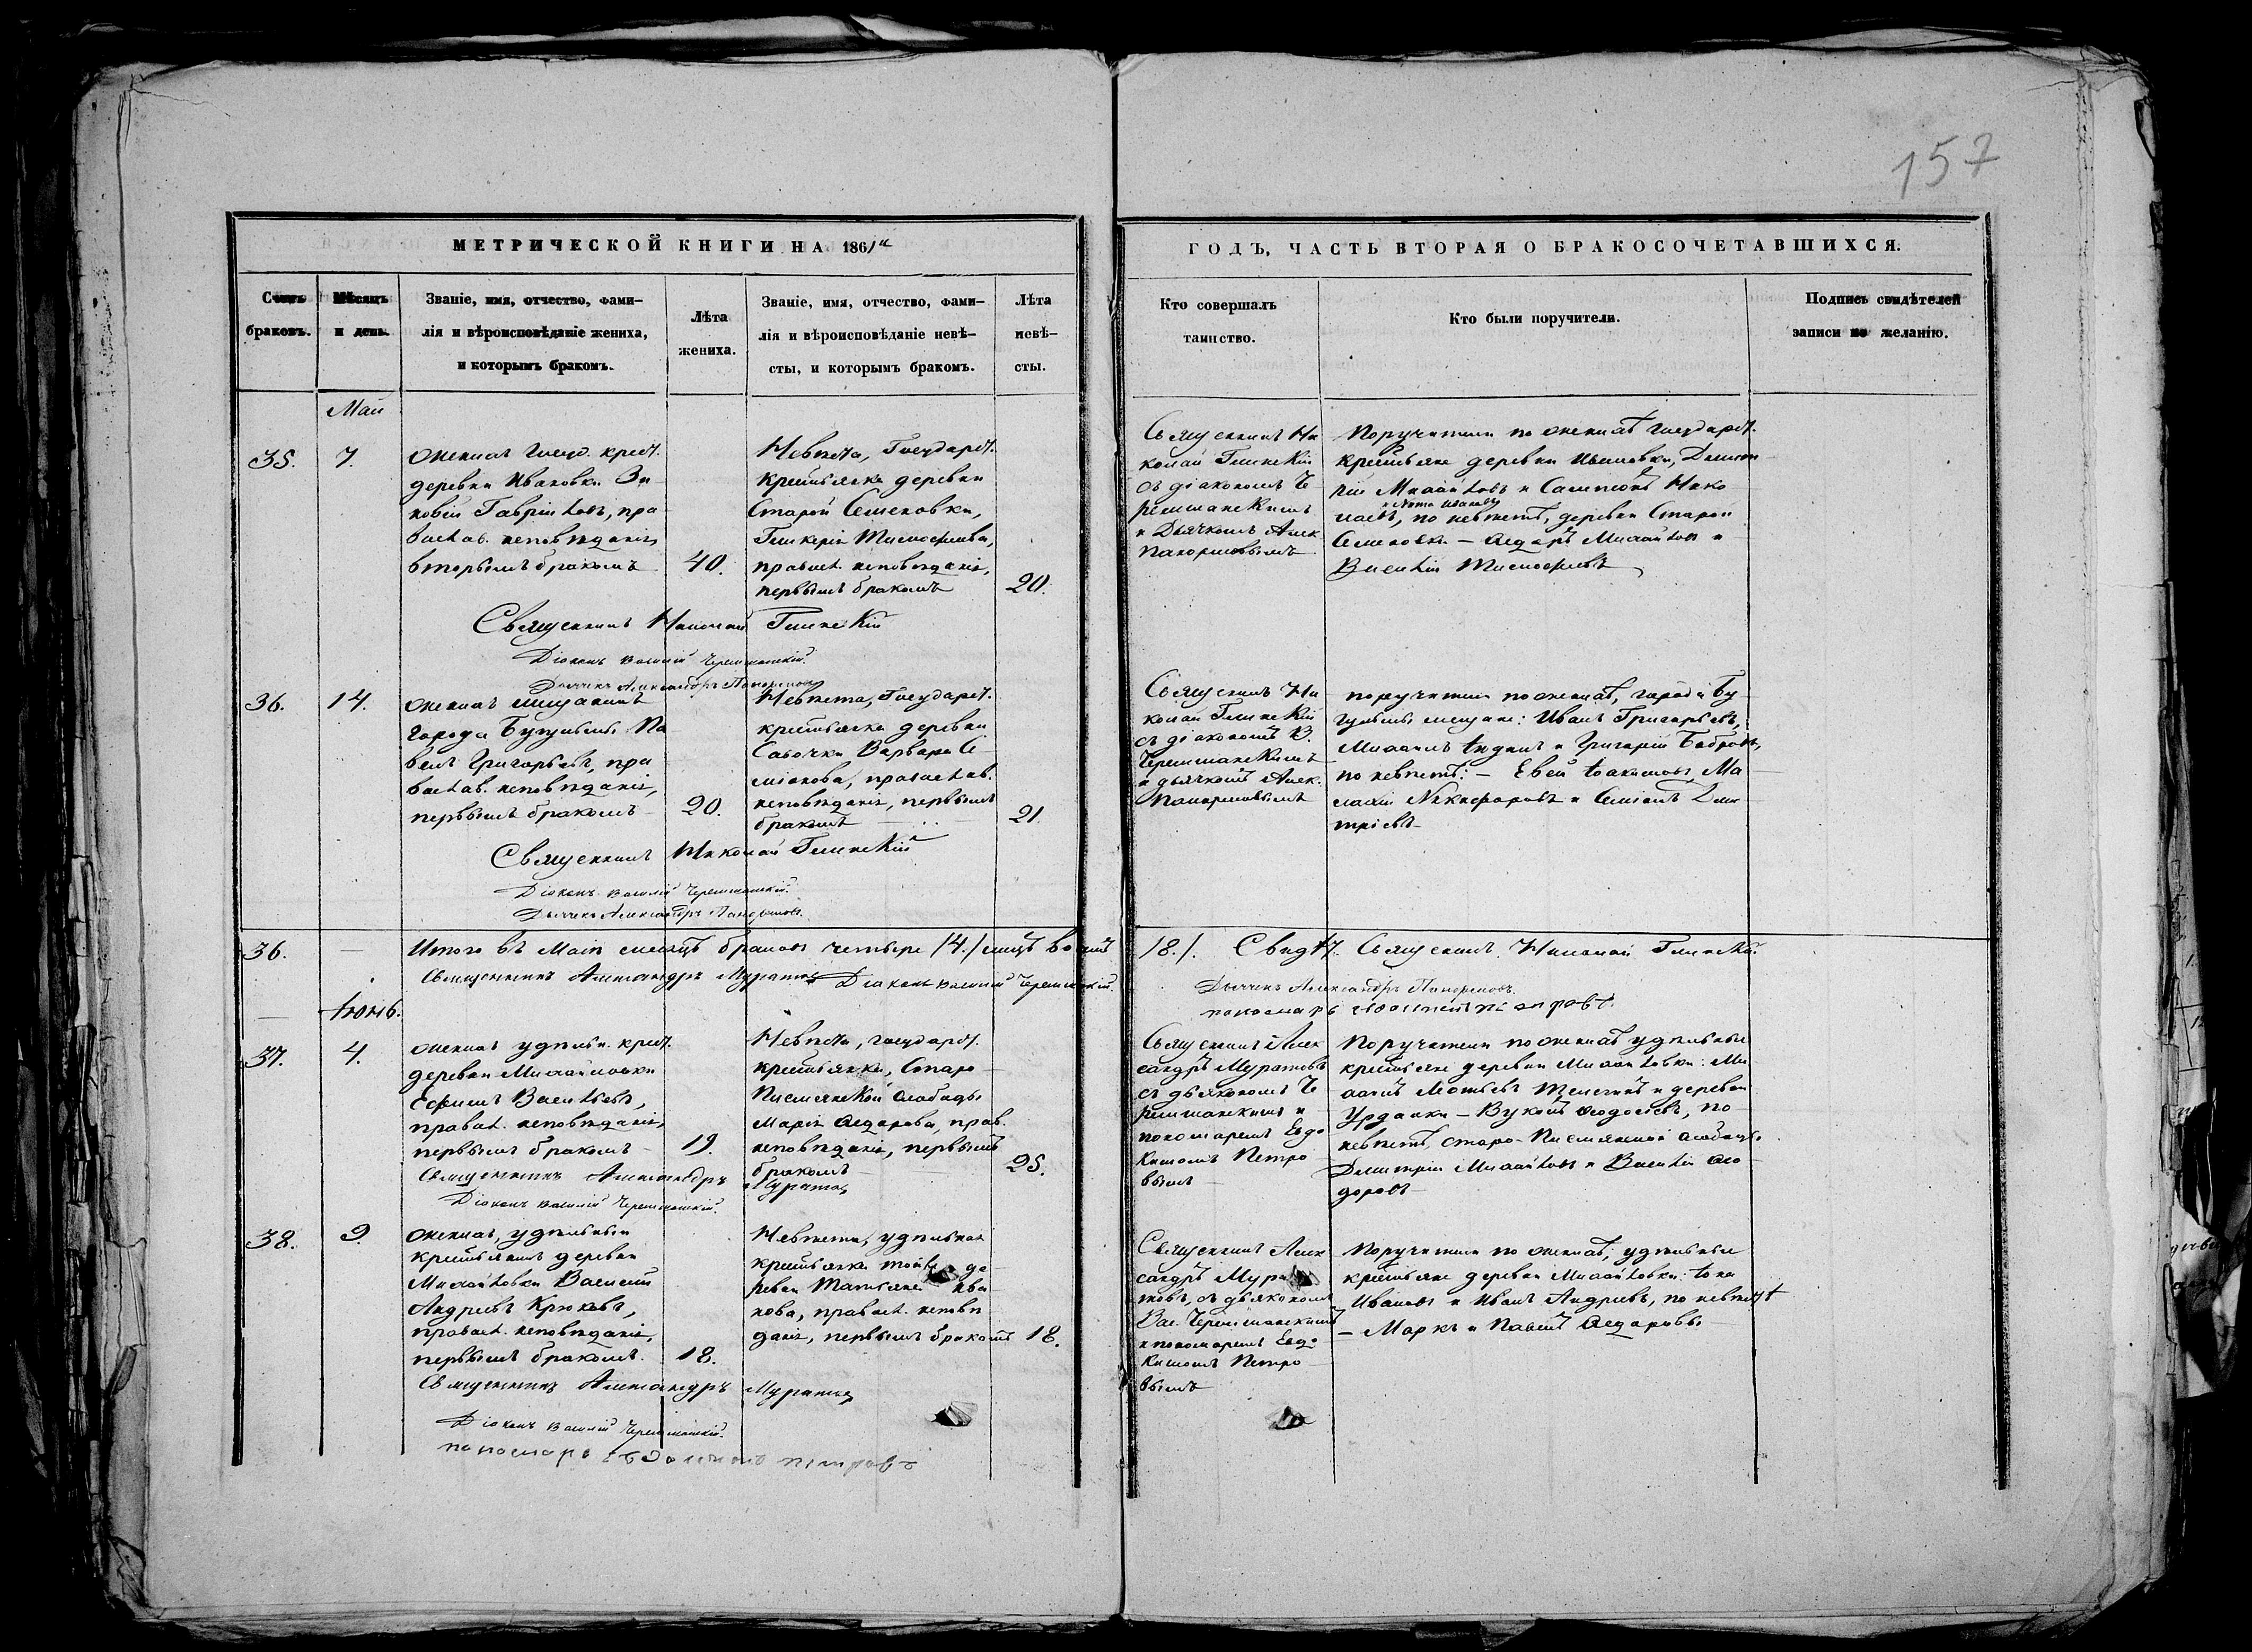 157
МЕТРИЧЕСКОЙ КНИГИ НА 1861й
ГОДЪ, ЧАСТЬ ВТОРАЯ О БРАКОСОЧЕТАВШИХСЯ.
Счетъ
браковъ.
Мѣсяцъ
и день.
Званіе, имя, отчество, фами-
лія и вѣроисповѣданіе жениха,
и которымъ бракомъ.
Лѣта
жениха.
Званіе, имя, отчество, фами-
лія и вѣроисповѣданіе невѣ-
сты, и которымъ бракомъ.
Лѣта
невѣ-
сты.
Кто совершалъ
таинство.
Кто были поручители.
Подпись свидѣтелей
записи по желанію.
Май
35.
7.
Женихъ Госуд. крест.
деревни Ивановки Зи-
новій Гавріиловъ, пра
вослав. исповѣданія,
вторымъ бракомъ
40.
Невѣста, Государст.
крестьянка деревни
Старой Семеновки,
Гликерія Тимофеева,
правосл. исповѣданія,
первымъ бракомъ
20.
Священникъ Ни
колай Глинскій
съ діакономъ Че
ремшанскимъ
и Дьячкомъ Алек
Панормовымъ
Поручители по женихѣ государст.
крестьяне деревни Ивановки, Димит
рій Михайловъ и Сампсонъ Нико
лаевъ, по невѣстѣ, деревни Старой
Семеновки — Ѳедоръ Михайловъ и
Василій Тимофеевъ
Священникъ Николай Глинскій
Діаконъ Василій Черемшанскій.
Дьячекъ Александръ Панормовъ
36.
14.
Женихъ мещанинъ
города Бугульмы Па
велъ Григорьевъ, пра
вослав. исповѣданія,
первымъ бракомъ
20.
Невѣста, Государст.
крестьянка деревни
Савочки Варвара Се
міонова, православ.
исповѣданія, первымъ
бракомъ
21.
Священникъ Ни
колай Глинскій
съ діакономъ В.
Черемшанскимъ
и дьячкомъ Алек.
Панормовымъ
поручители по женихѣ, города Бу
гульмы мещане: Иванъ Григорьевъ,
Михаилъ Іудинъ и Григорій Бобровъ,
по невѣстѣ: — Евсей Іоакимовъ, Ма
лахій Никифоровъ и Семіонъ Дим
тріевъ
Священникъ Николай Глинскій
Діаконъ Василій Черемшанскій.
Дьячекъ Александръ Панормовъ.
36.
Итого въ Маіѣ месяцѣ браковъ четыре /4./ лицъ восемь
/8./. Свидѣт. Священникъ Николай Глинскій
Священникъ Александръ Муратовъ Діаконъ Василій Черемшанскій.
Дьячекъ Александръ Панормовъ.
пономарь Евдокимъ Петровъ.
Іюнь.
37.
4.
Женихъ удѣльн. крест.
деревни Михайловки
Ефимъ Васильевъ,
правосл. исповѣданія,
первымъ бракомъ
19.
Невѣста, государст.
крестьянка, Старо
Писмянской слободы
Марія Ѳедорова, прав.
исповѣданія, первымъ
бракомъ
25.
Священникъ Алек
сандръ Муратовъ
съ дьякономъ Че
ремшанскимъ и
пономаремъ Евдо
кимомъ Петро
вымъ
Поручители по женихѣ удѣльные
крестьяне деревни Михайловки: Ми
хаилъ и деревни
Урдалки — Ѳеодосіевъ, по
невѣстѣ, старо-Писмянской слободы:
Димитрій Михайловъ и Василій Ѳео
доровъ
Священникъ Александръ Муратовъ
Діаконъ Василій Черемшанскій.
38.
9.
Женихъ, удѣльный
крестьянинъ деревни
Михайловки Василій
Андреевъ Крюковъ,
правосл. исповѣданія,
первымъ бракомъ.
18.
Невѣста, удѣльная
крестьянка тойже де
ревни Татьяна Ива
нова, правосл. исповѣ
данія, первымъ бракомъ
18.
Священникъ Алек
сандръ Мура
товъ, съ дьякономъ
Вас. Черемшанскимъ
и пономаремъ Евдо
кимомъ Петро
вымъ
Поручители по женихѣ, удѣльные
крестьяне деревни Михайловки: Іона
Ивановъ и Иванъ Андреевъ, по невѣстѣ
— Маркъ и Павелъ Ѳедоровы
Священникъ Александръ Муратовъ
Діаконъ Василій Черемшанскій.
пономарь Евдокимъ Петровъ